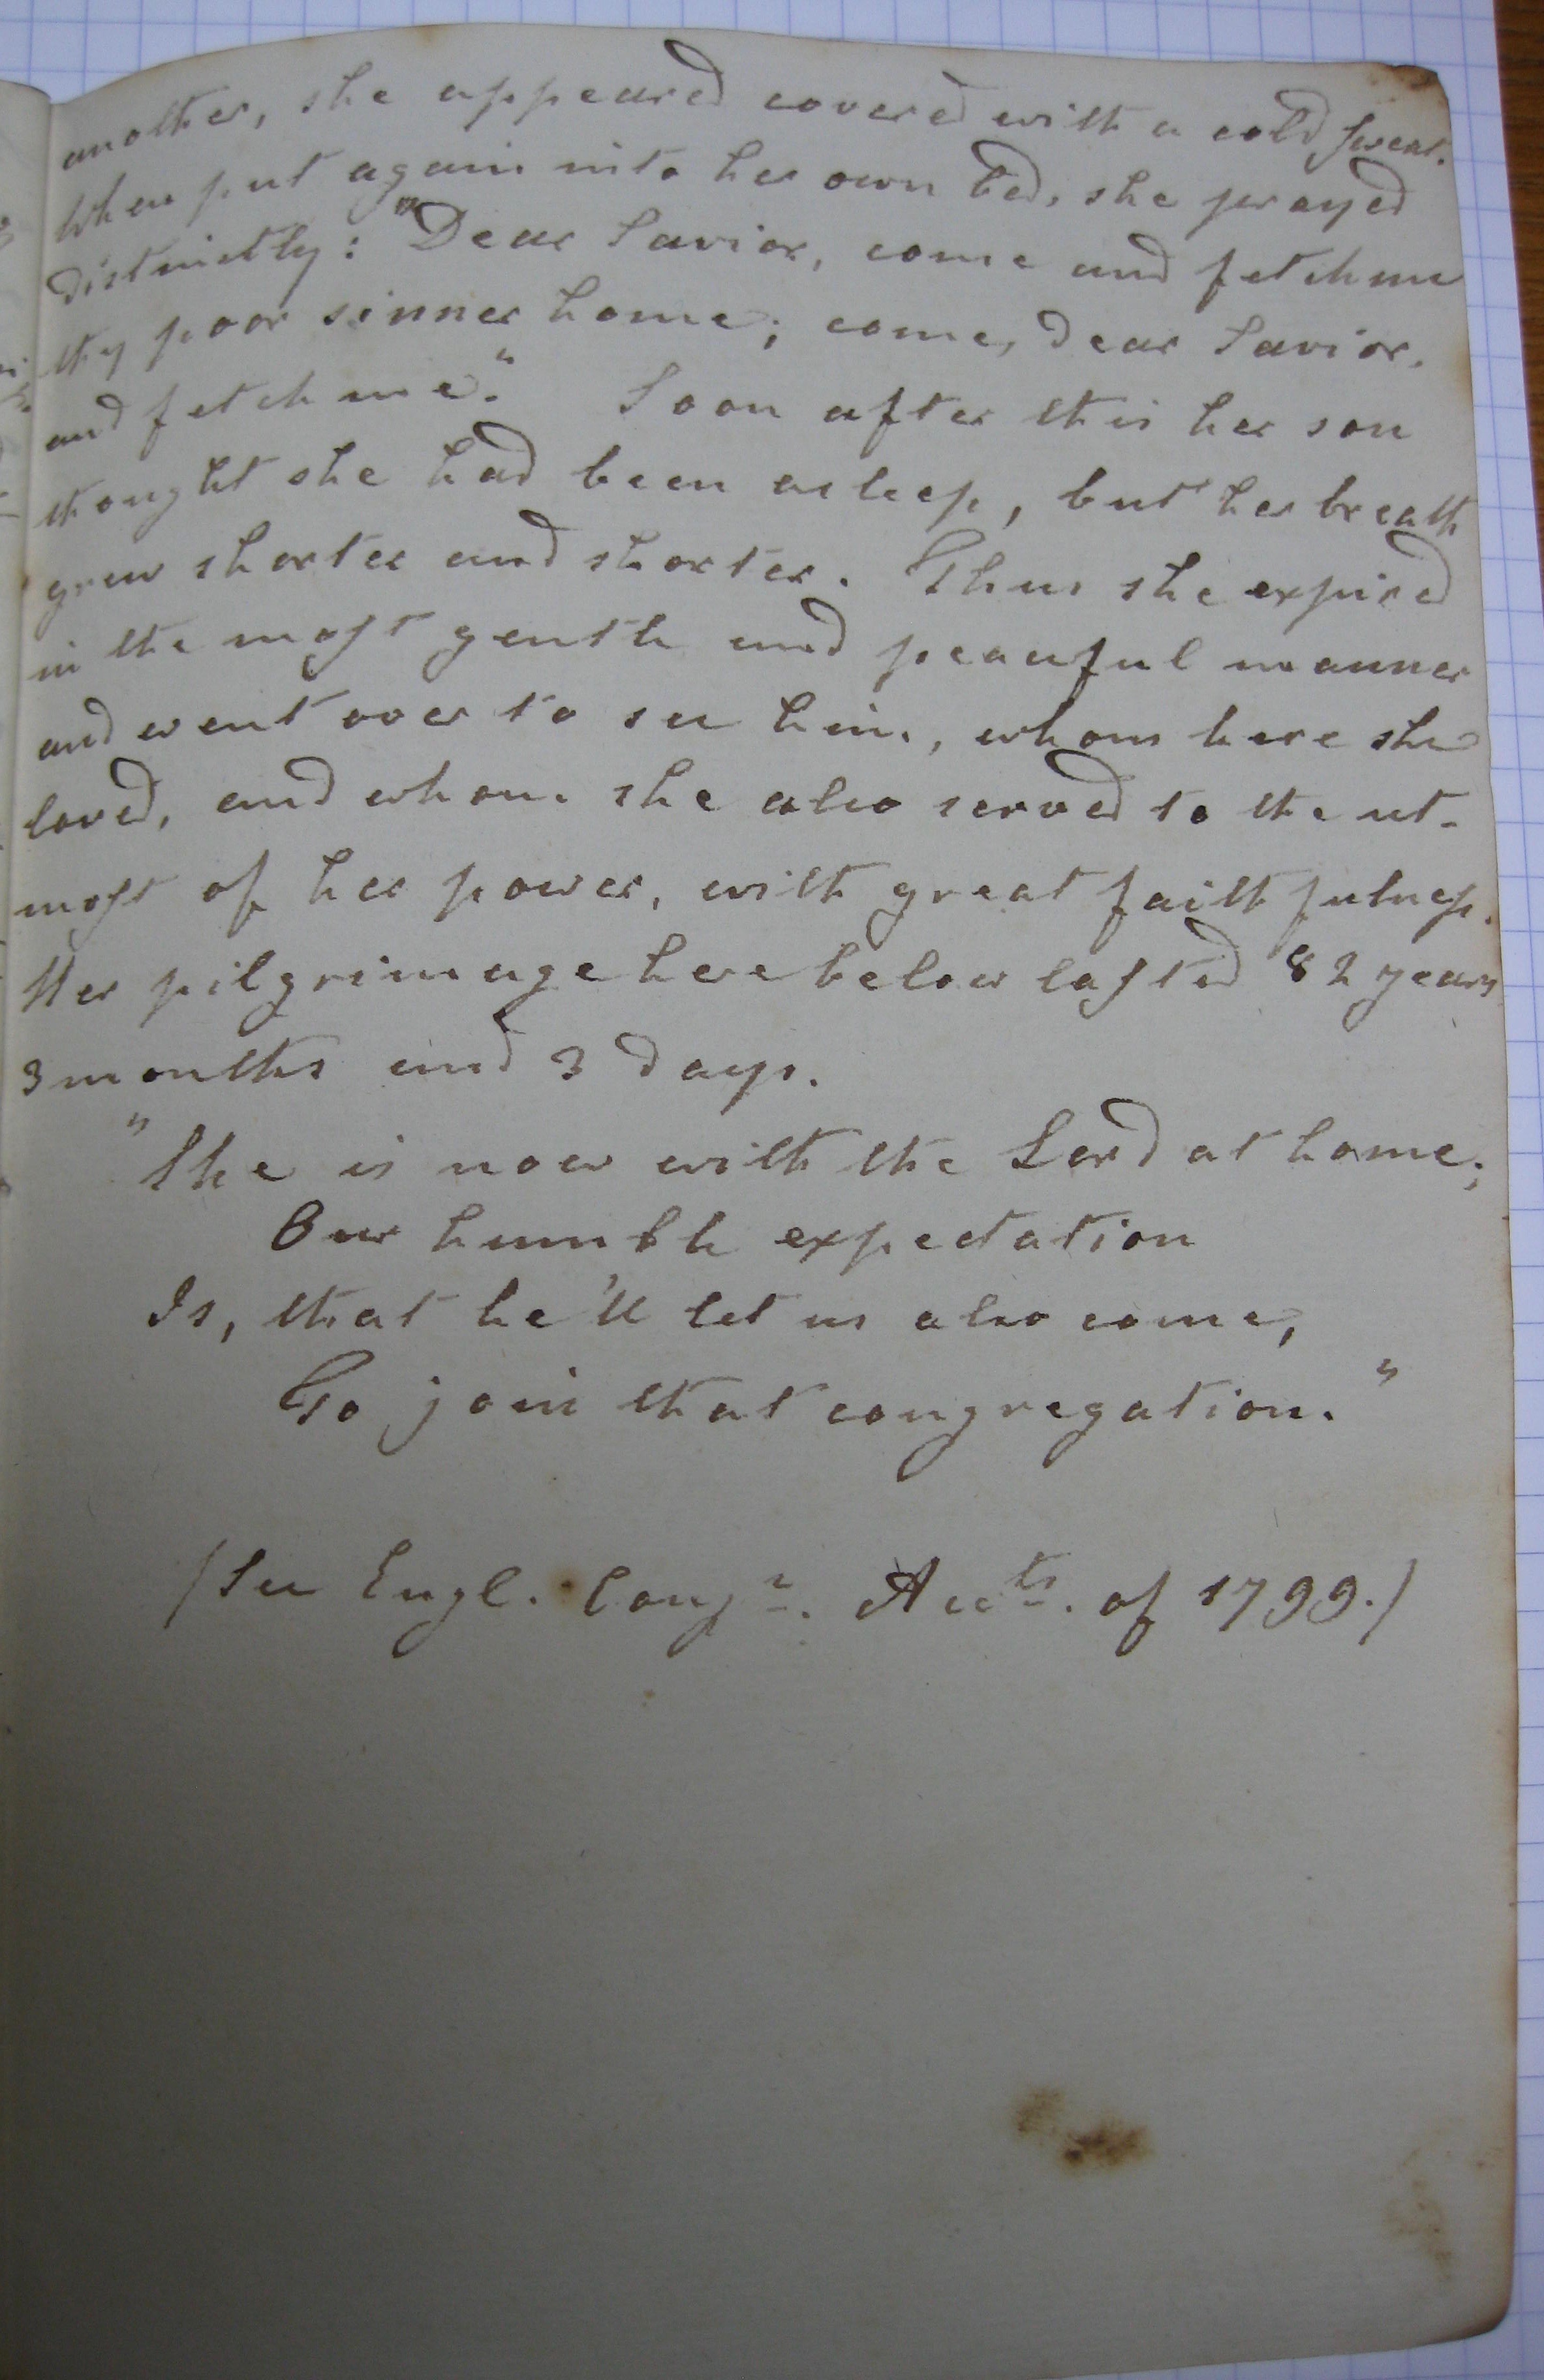 another, she appeared covered with a cold sweat.
When put again into her own bed, she prayed
distinctly: "Dear Savior, come and fetch me
thy poor sinner home; come, dear Savior,
and fetch me." Soon after this her son
thought she had been asleep, but her breath
grew shorter and shorter. Thus she expired
in the most gentle and peaceful manner
and went over to see him, whom here she
loved, and whom she also served to the ut-
most of her power, with great faithfulness.
Her pilgrimage here below lasted 82 years
3 months and 3 days.
"She is now with the Lord at home;
Our humble expectation
Is, that he'll let us also come,
To join that congregation."
/See Engl. Congn. Accts. of 1799./